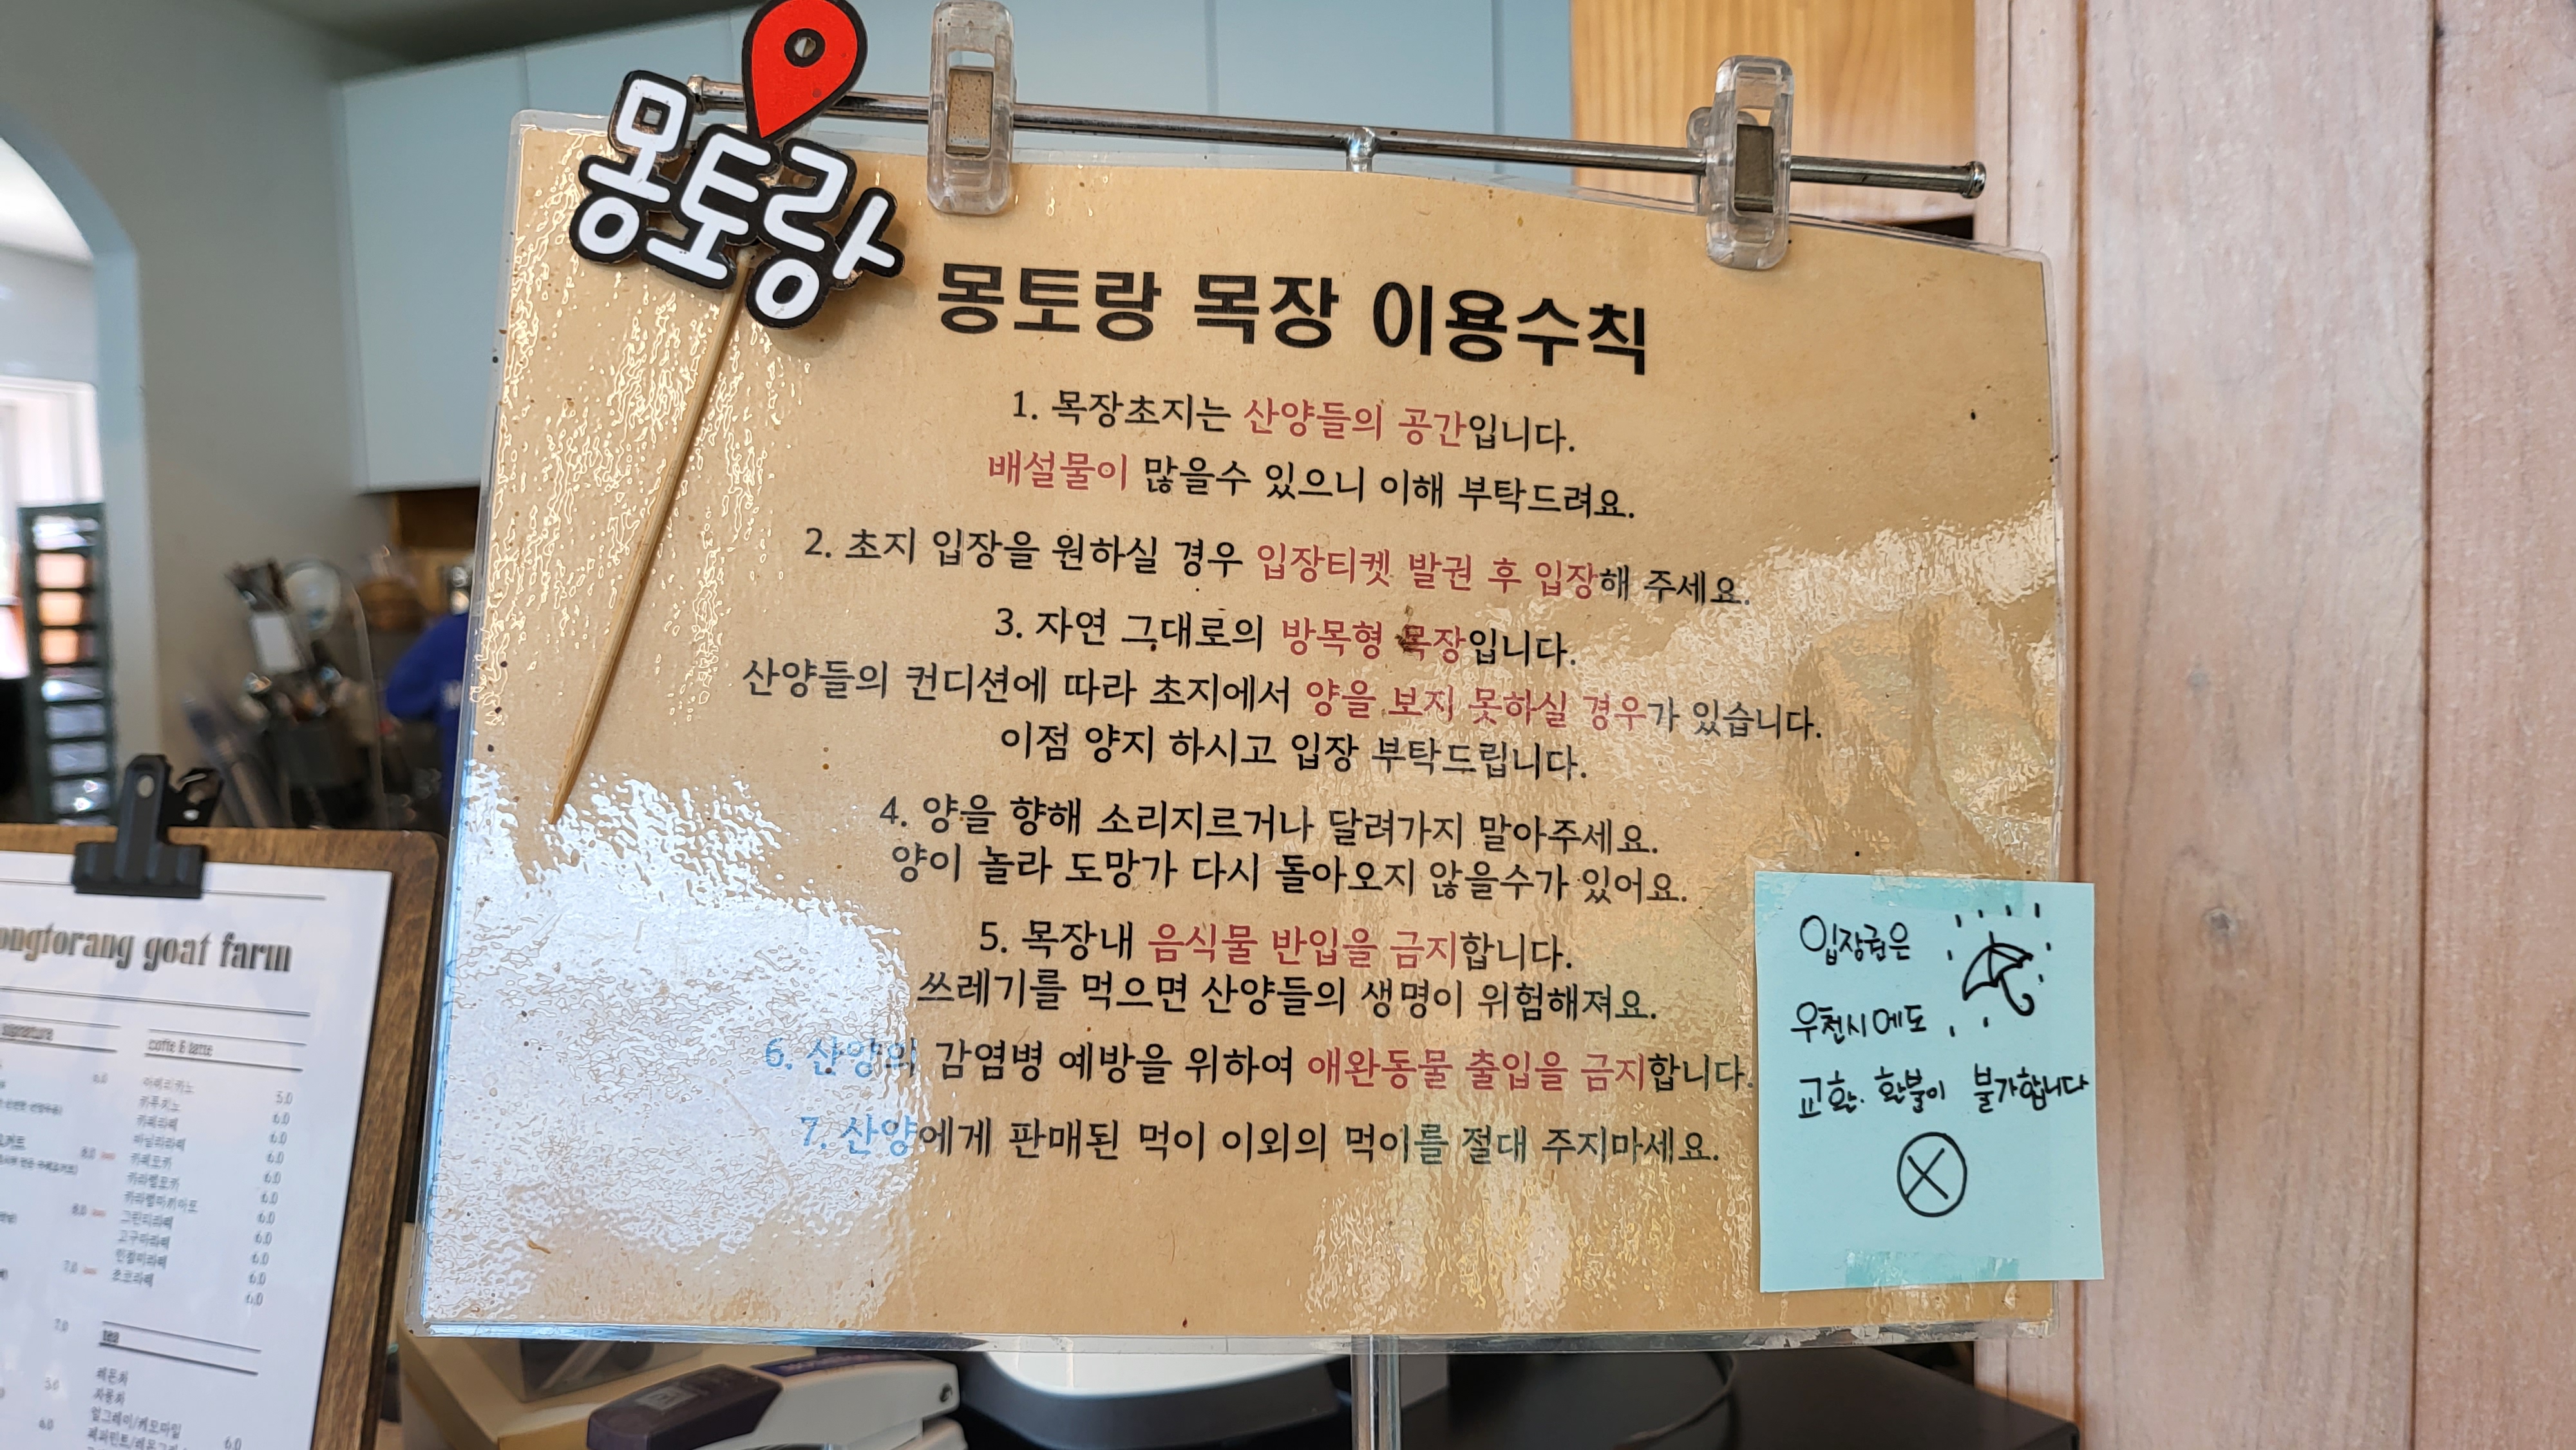 몽토랑
몽토랑 목장 이용수칙
1. 목장초지는 산양들의 공간입니다.
배설물이 많을수 있으니 이해 부탁드려요.
2. 초지 입장을 원하실 경우 입장티켓 발권 후 입장해 주세요.
3. 자연 그대로의 방목형 목장입니다.
산양들의 컨디션에 따라 초지에서 양을 보지 못하실 경우가 있습니다.
이점 양지 하시고 입장 부탁드립니다.
4. 양을 향해 소리지르거나 달려가지 말아주세요.
양이 놀라 도망가 다시 돌아오지 않을수가 있어요.
5. 목장내 음식물 반입을 금지합니다.
쓰레기를 먹으면 산양들의 생명이 위험해져요.
6. 산양의 감염병 예방을 위하여 애완동물 출입을 금지합니다.
7. 산양에게 판매된 먹이 이외의 먹이를 절대 주지마세요.
입장권은
우천시에도
교환. 환불이 불가합니다
ongtorang goat farm
coffe & latte
아메리카노 5.0
카푸치노 6.0
카페라떼 6.0
바닐라라떼 6.0
카페모카 6.0
카라멜모카 6.0
카라멜마끼아또 6.0
그린티라떼 6.0
고구마라떼 6.0
민참미라떼 6.0
초코라떼 6.0
tea
레몬차
자몽차
얼그레이/케모마일 6.0